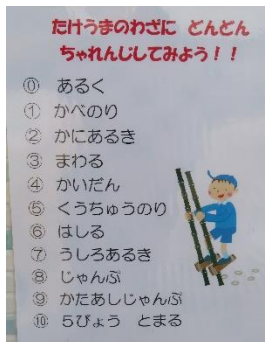 たけうまのわざに どんどん
ちゃれんじしてみよう！！
⓪ あるく
① かべのり
② かにあるき
③ まわる
④ かいだん
⑤ くうちゅうのり
⑥ はしる
⑦ うしろあるき
⑧ じゃんぷ
⑨ かたあしじゃんぷ
⑩ ５びょう とまる